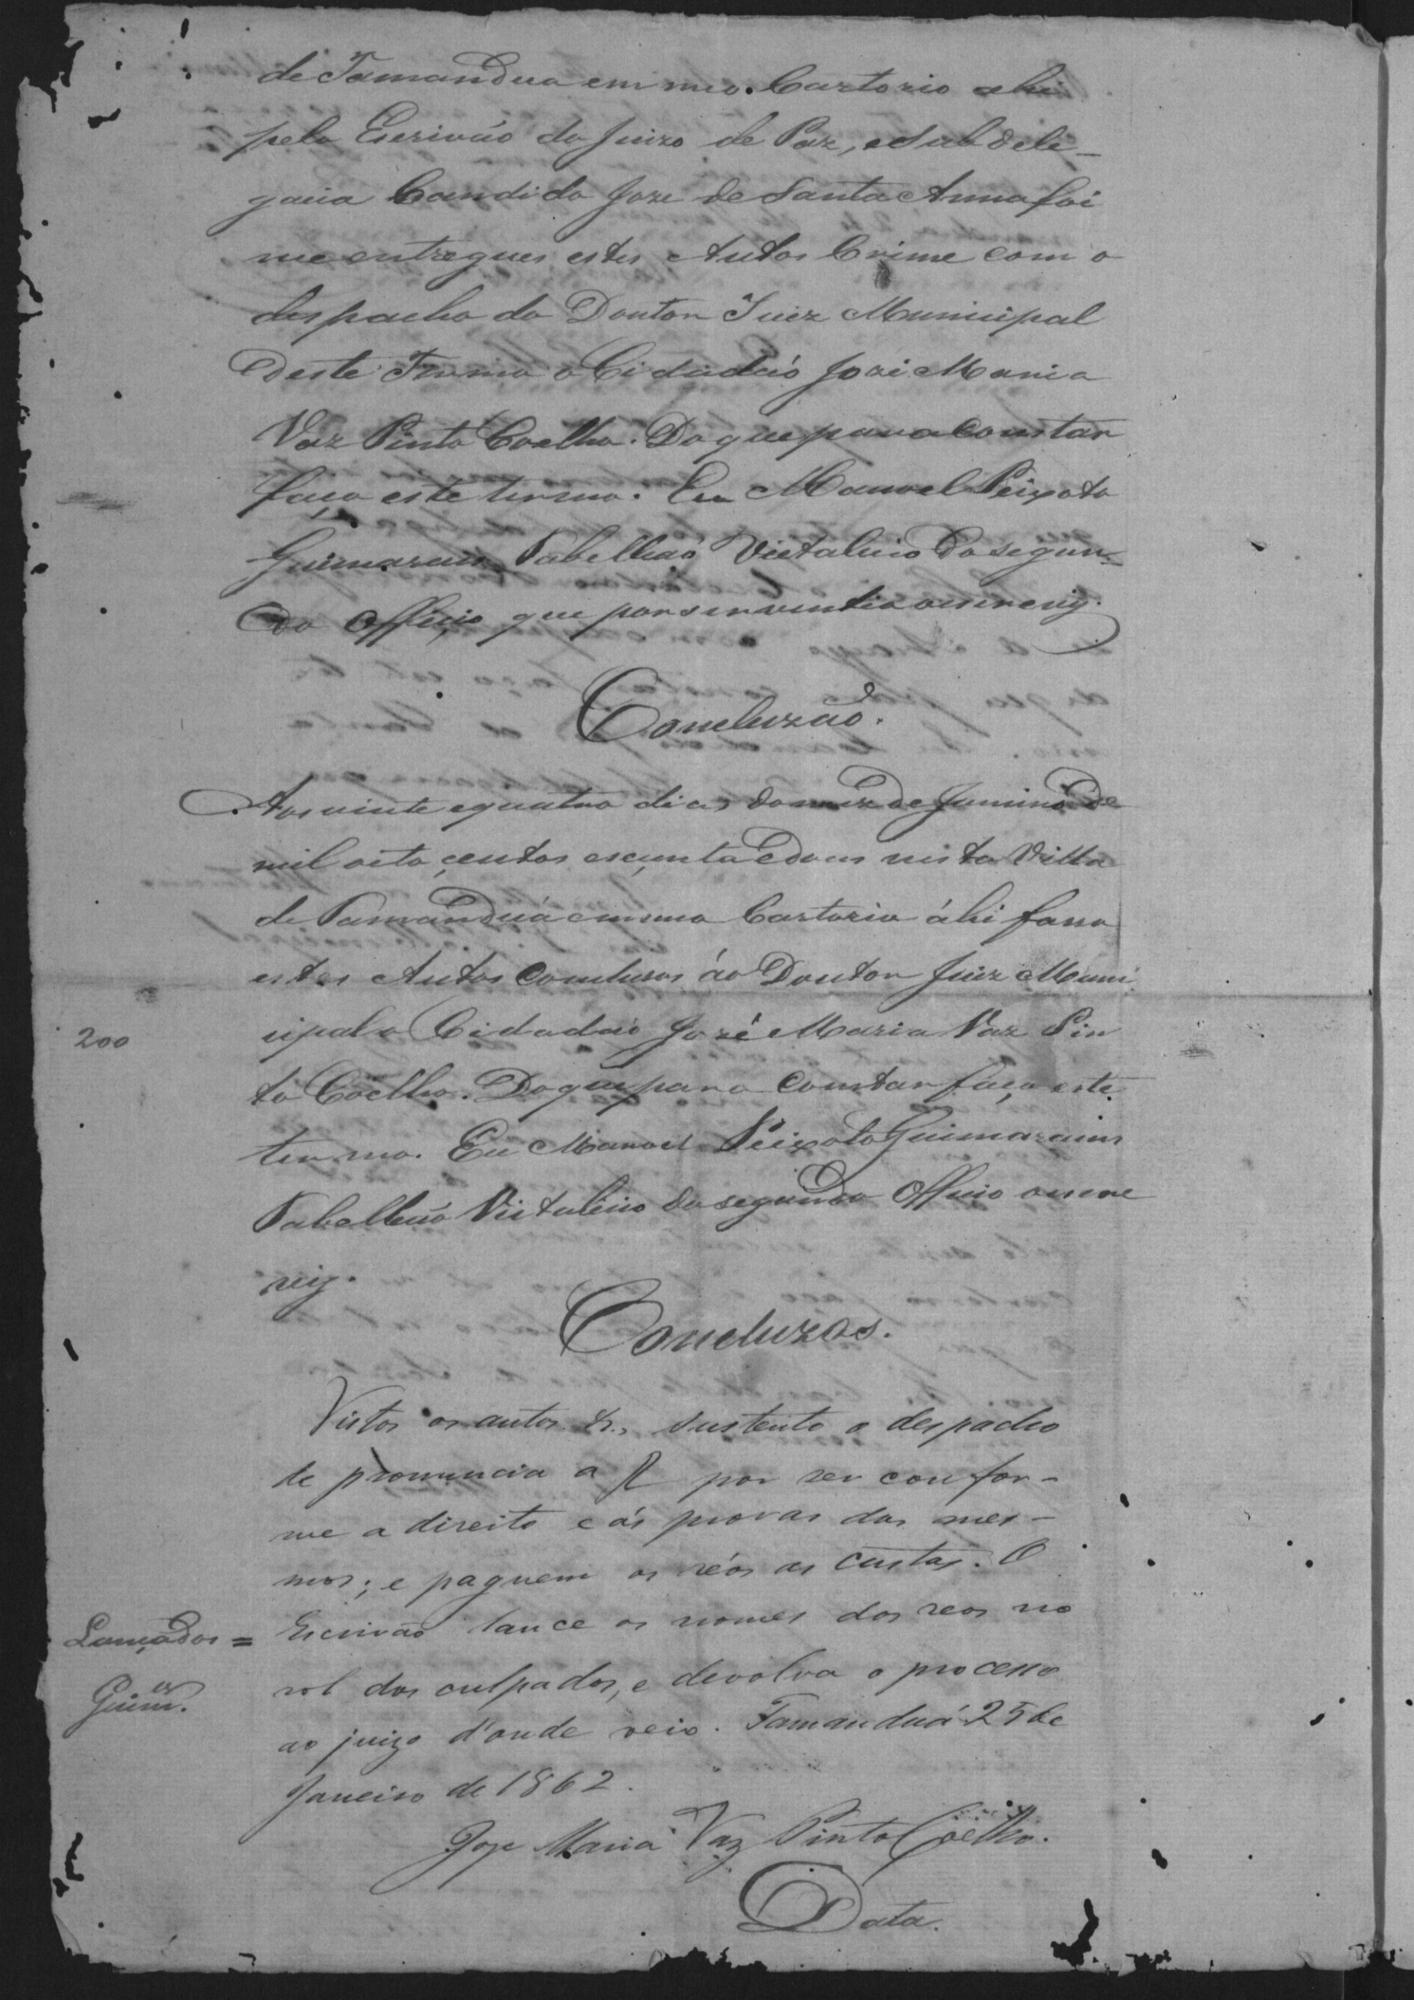 de Tamandua em meo Cartorio ahi
pelo Escrivão do Juizo de Paz, e Subdele-
gacia Candido Joze de Santa Anna foi
me entregues estes Autos Crime com o
despacho do Doutor Juiz Municipal
deste Termo o Cidadaó Jozé Maria
Vaz Pinto Coelho. Do que para constar
faço este termo. Eu Manoel Peixoto
Guimaraes Tabelliaó Vietalicio do segun-
do Officio, que por serventia escrevy.
Concluzão.
Aos vinte e quatro dias do mez de Janeiro de
mil oito centos e secenta e dous nesta Villa
de Tamanduá em meo Cartorio áhi faço
estes Autos concluzos áo Doutor Juiz Muni
cipal o Cidadaó Jozé Maria Vaz Pin
200
to Coelho. Do que para constar faço este
termo. Eu Manoel Peixoto Guimaraens
Tabelliaó Vietalicio do segundo Officio o escre
vy.
Concluzos.
Vistos os autos &, sustento o despacho
de pronuncia a f por ser confor-
me a direito e ás provas dos mes-
mos; e paguem os réos as custas. O
Escrivão lance os nomes dos reos no
Lançados =
rol dos culpados, e devolva o processo
Guim.es
ao juizo d'onde veio. Tamanduá 25 de
Janeiro de 1862.
Joze Maria Vaz Pinto Coelho.
Data.